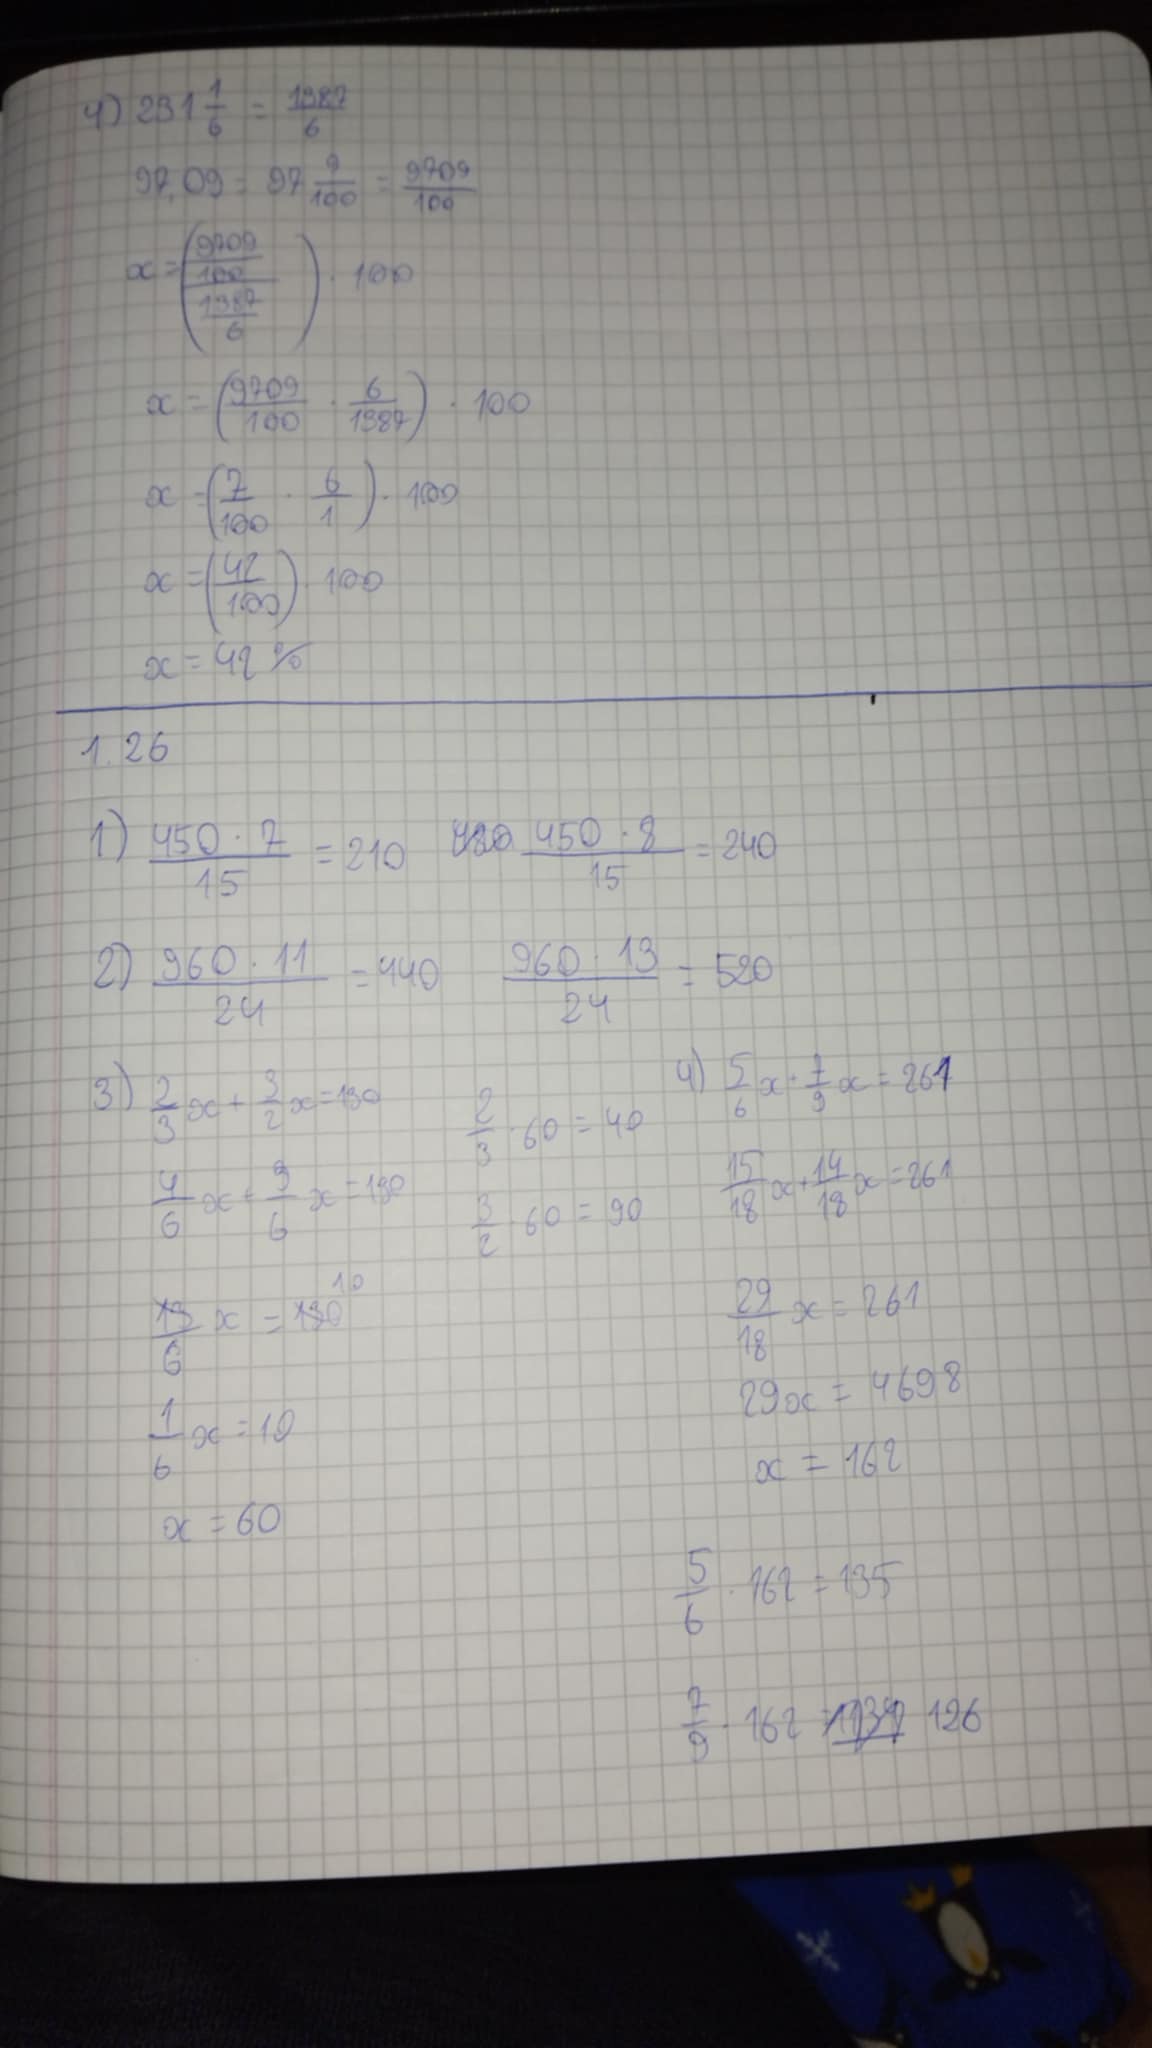 4) 231 1/6 = 1387/6
97,09 = 97 9/100 = 9709/100
x = ((9709/100)/(1387/6)) · 100
x = (9709/100 · 6/1387) · 100
x = (7/100 · 6/1) · 100
x = (42/100) · 100
x = 42 %
1.26
1) 450 · 7/15 = 210 450 · 8/15 = 240
2) 960 · 11/24 = 440 960 · 13/24 = 520
3) 2/3 x + 3/2 x = 130
4/6 x + 9/6 x = 130
13/6 x = 130 10
1/6 x = 10
x = 60
2/3 · 60 = 40
3/2 · 60 = 90
4) 5/6 x + 7/9 x = 261
15/18 x + 14/18 x = 261
29/18 x = 261
29x = 4698
x = 162
5/6 · 162 = 135
7/9 · 162 = 126